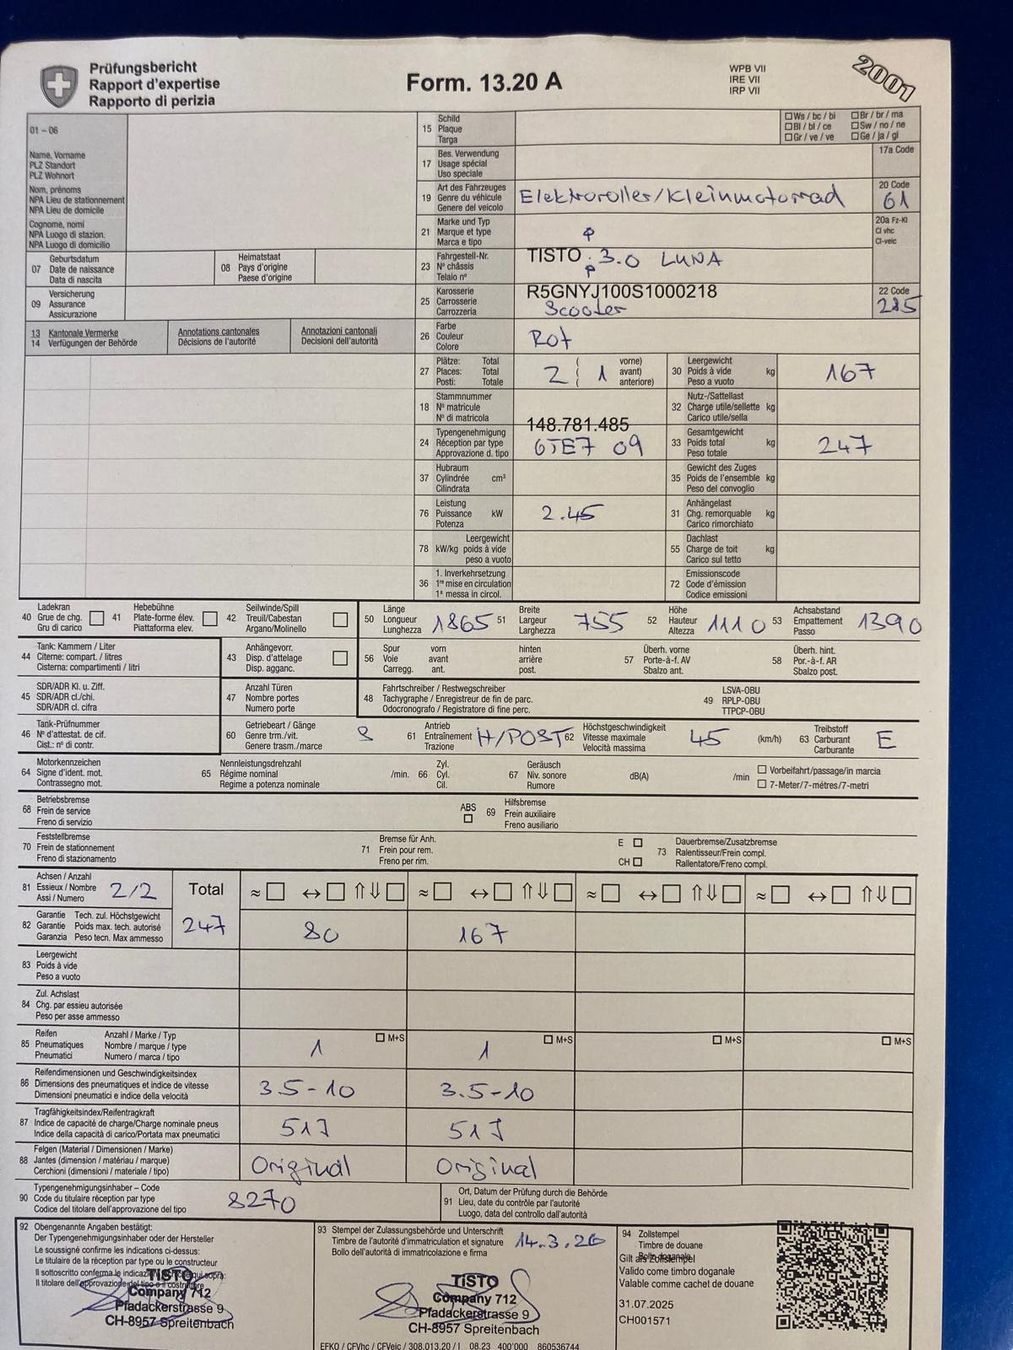 Prüfungsbericht
Rapport d'expertise
Rapporto di perizia
Form. 13.20 A
WPB VII
IRE VII
IRP VII
2001
01 – 06
Name, Vorname
PLZ Standort
PLZ Wohnort
Nom, prénoms
NPA Lieu de stationnement
NPA Lieu de domicile
Cognome, nomi
NPA Luogo di stazion.
NPA Luogo di domicilio
07 Geburtsdatum
Date de naissance
Data di nascita
08 Heimatstaat
Pays d'origine
Paese d'origine
09 Versicherung
Assurance
Assicurazione
13 Kantonale Vermerke
14 Verfügungen der Behörde
Annotations cantonales
Décisions de l'autorité
Annotazioni cantonali
Decisioni dell'autorità
15 Schild
Plaque
Targa
Ws / bc / bi
Bl / bl / ce
Gr / ve / ve
Br / br / ma
Sw / no / ne
Ge / ja / gi
17 Bes. Verwendung
Usage spécial
Uso speciale
17a Code
19 Art des Fahrzeuges
Genre du véhicule
Genere del veicolo
Elektroroller/Kleinmotorrad
20 Code
61
21 Marke und Typ
Marque et type
Marca e tipo
20a Fz-Kl
Cl vhc
Cl-veic
TISTO 3.0 LUNA
23 Fahrgestell-Nr.
N° châssis
Telaio n°
R5GNYJ100S1000218
25 Karosserie
Carrosserie
Carrozzeria
Scooter
22 Code
215
26 Farbe
Couleur
Colore
Rot
27 Plätze: Total
Places: Total
Posti: Totale
2 ( 1 vorne)
avant)
anteriore)
30 Leergewicht
Poids à vide kg
Peso a vuoto
167
18 Stammnummer
N° matricule
N° di matricola
148.781.485
32 Nutz-/Sattellast
Charge utile/sellette kg
Carico utile/sella
24 Typengenehmigung
Réception par type
Approvazione d. tipo
6TE7 09
33 Gesamtgewicht
Poids total kg
Peso totale
247
37 Hubraum
Cylindrée cm³
Cilindrata
35 Gewicht des Zuges
Poids de l'ensemble kg
Peso del convoglio
76 Leistung
Puissance kW
Potenza
2.45
31 Anhängelast
Chg. remorquable kg
Carico rimorchiato
78 Leergewicht
kW/kg poids à vide
peso a vuoto
55 Dachlast
Charge de toit kg
Carico sul tetto
36 1. Inverkehrsetzung
1re mise en circulation
1a messa in circol.
72 Emissionscode
Code d'émission
Codice emissioni
40 Ladekran
Grue de chg.
Gru di carico
41 Hebebühne
Plate-forme élev.
Piattaforma elev.
42 Seilwinde/Spill
Treuil/Cabestan
Argano/Molinello
50 Länge
Longueur
Lunghezza
1865
51 Breite
Largeur
Larghezza
755
52 Höhe
Hauteur
Altezza
1110
53 Achsabstand
Empattement
Passo
1390
44 Tank: Kammern / Liter
Citerne: compart. / litres
Cisterna: compartimenti / litri
43 Anhängevorr.
Disp. d'attelage
Disp. agganc.
56 Spur vorn
Voie avant
Carregg. ant.
hinten
arrière
post.
57 Überh. vorne
Porte-à-f. AV
Sbalzo ant.
58 Überh. hint.
Por.-à-f. AR
Sbalzo post.
45 SDR/ADR Kl. u. Ziff.
SDR/ADR cl./chi.
SDR/ADR cl. cifra
47 Anzahl Türen
Nombre portes
Numero porte
48 Fahrtschreiber / Restwegschreiber
Tachygraphe / Enregistreur de fin de parc.
Odocronografo / Registratore di fine perc.
49 LSVA-OBU
RPLP-OBU
TTPCP-OBU
46 Tank-Prüfnummer
N° d'attestat. de cif.
Cist.: n° di contr.
60 Getriebeart / Gänge
Genre trm./vit.
Genere trasm./marce
61 Antrieb
Entraînement
Trazione
H/POST
62 Höchstgeschwindigkeit
Vitesse maximale
Velocità massima
45
(km/h)
63 Treibstoff
Carburant
Carburante
E
64 Motorkennzeichen
Signe d'ident. mot.
Contrassegno mot.
65 Nennleistungsdrehzahl
Régime nominal
Regime a potenza nominale
/min.
66 Zyl.
Cyl.
Cil.
67 Geräusch
Niv. sonore
Rumore
dB(A)
/min
Vorbeifahrt/passage/in marcia
7-Meter/7-mètres/7-metri
68 Betriebsbremse
Frein de service
Freno di servizio
ABS
69 Hilfsbremse
Frein auxiliaire
Freno ausiliario
70 Feststellbremse
Frein de stationnement
Freno di stazionamento
71 Bremse für Anh.
Frein pour rem.
Freno per rim.
E
CH
73 Dauerbremse/Zusatzbremse
Ralentisseur/Frein compl.
Rallentatore/Freno compl.
81 Achsen / Anzahl
Essieux / Nombre
Assi / Numero
2/2
Total
≈ ↔ ⇑⇓ ≈ ↔ ⇑⇓ ≈ ↔ ⇑⇓ ≈ ↔ ⇑⇓
82 Garantie Tech. zul. Höchstgewicht
Garantie Poids max. tech. autorisé
Garanzia Peso tecn. Max ammesso
247 80 167
83 Leergewicht
Poids à vide
Peso a vuoto
84 Zul. Achslast
Chg. par essieu autorisée
Peso per asse ammesso
85 Reifen Anzahl / Marke / Typ
Pneumatiques Nombre / marque / type
Pneumatici Numero / marca / tipo
1 M+S 1 M+S M+S M+S
86 Reifendimensionen und Geschwindigkeitsindex
Dimensions des pneumatiques et indice de vitesse
Dimensioni pneumatici e indice della velocità
3.5-10 3.5-10
87 Tragfähigkeitsindex/Reifentragkraft
Indice de capacité de charge/Charge nominale pneus
Indice della capacità di carico/Portata max pneumatici
51J 51J
88 Felgen (Material / Dimensionen / Marke)
Jantes (dimension / matériau / marque)
Cerchioni (dimensioni / materiale / tipo)
Original Original
90 Typengenehmigungsinhaber – Code
Code du titulaire réception par type
Codice del titolare dell'approvazione del tipo
8270
91 Ort, Datum der Prüfung durch die Behörde
Lieu, date du contrôle par l'autorité
Luogo, data del controllo dall'autorità
92 Obengenannte Angaben bestätigt:
Der Typengenehmigungsinhaber oder der Hersteller
Le soussigné confirme les indications ci-dessus:
Le titulaire de la réception par type ou le constructeur
Il sottoscritto conferma le indicazioni qui sopra:
Il titolare dell'approvazione del tipo o il costruttore
TISTO
Company 712
Pfadackerstrasse 9
CH-8957 Spreitenbach
93 Stempel der Zulassungsbehörde und Unterschrift
Timbre de l'autorité d'immatriculation et signature
Bollo dell'autorità di immatricolazione e firma
14.3.26
TISTO
Company 712
Pfadackerstrasse 9
CH-8957 Spreitenbach
94 Zollstempel
Timbre de douane
Bollo doganale
Gilt als Zollstempel
Valido come timbro doganale
Valable comme cachet de douane
31.07.2025
CH001571
EFKO / CFVhc / CFVeic / 308.013.20 / I 08.23 400'000 860536744